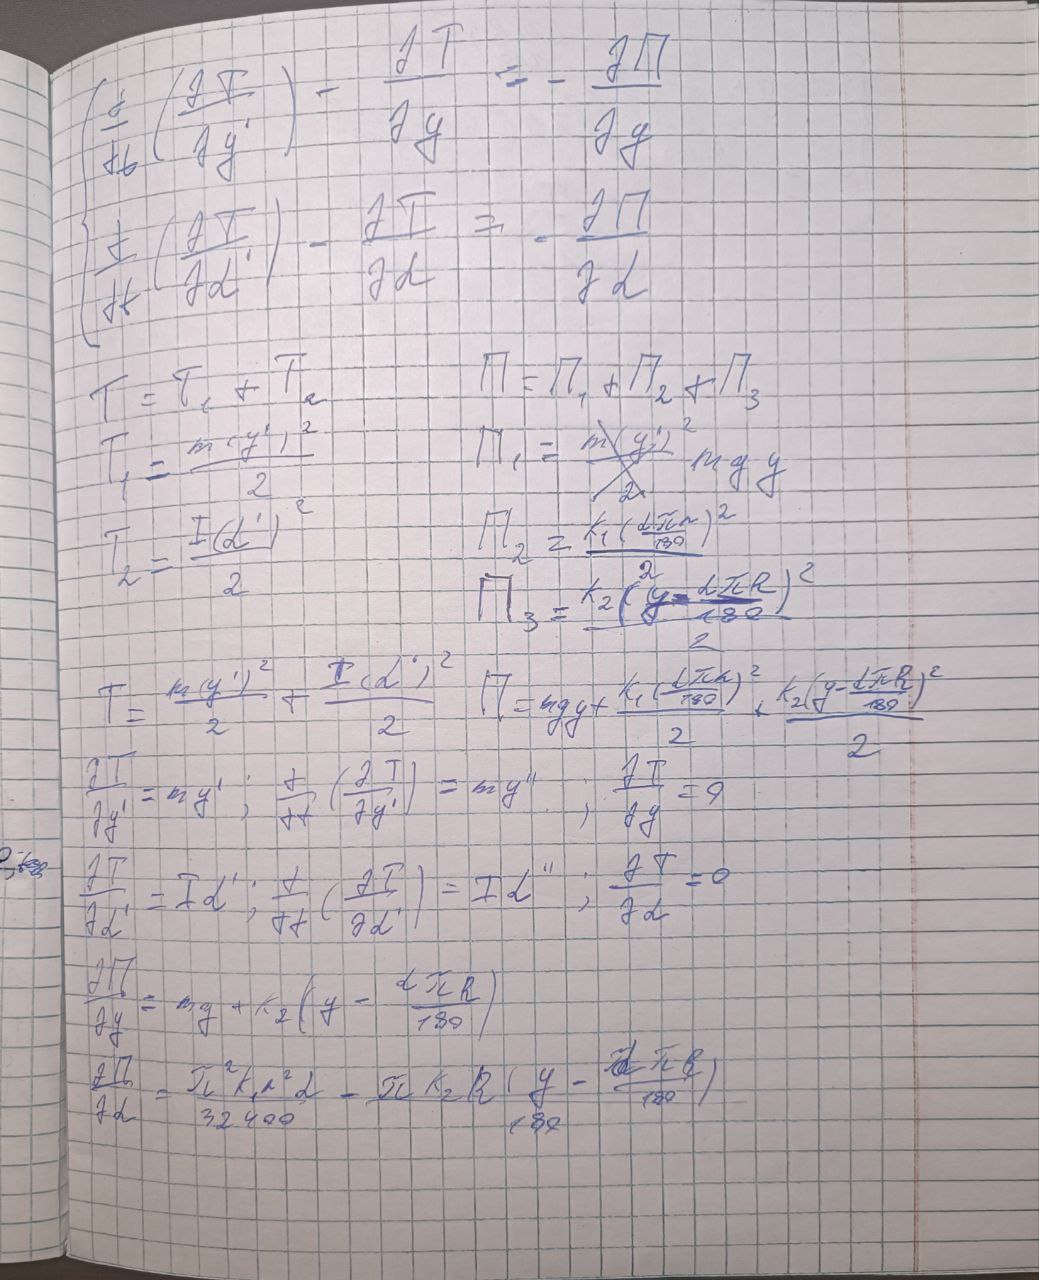 { d/dt (∂T/∂y') - ∂T/∂y = - ∂П/∂y
{ d/dt (∂T/∂α') - ∂T/∂α = - ∂П/∂α
T = T₁ + T₂ П = П₁ + П₂ + П₃
T₁ = m(y')²/2 П₁ = mgy
T₂ = I(α')²/2 П₂ = k₁(απr/180)²/2
П₃ = k₂(y - απR/180)²/2
T = m(y')²/2 + I(α')²/2 П = mgy + k₁(απr/180)²/2 + k₂(y - απR/180)²/2
∂T/∂y' = my' ; d/dt (∂T/∂y') = my'' ; ∂T/∂y = 0
∂T/∂α' = Iα' ; d/dt (∂T/∂α') = Iα'' ; ∂T/∂α = 0
∂П/∂y = mg + k₂(y - απR/180)
∂П/∂α = π²k₁r²α/32400 - πk₂R(y - απR/180)/180